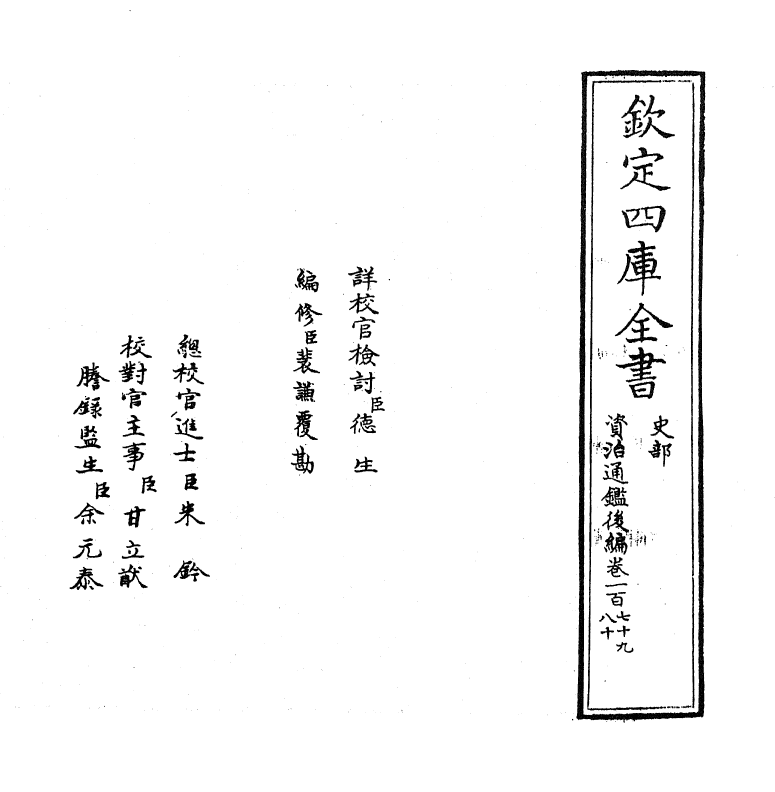 欽定四庫全書
史部
資治通鑑後編卷一百七十九
八十
詳校官檢討臣德生
編修臣裴謙覆勘
總校官進士臣朱鈐
校對官主事臣甘立猷
謄錄監生臣余元泰